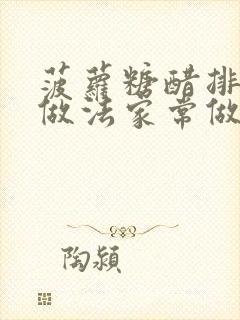 菠蘿糖醋排
做法家常做
陶潁